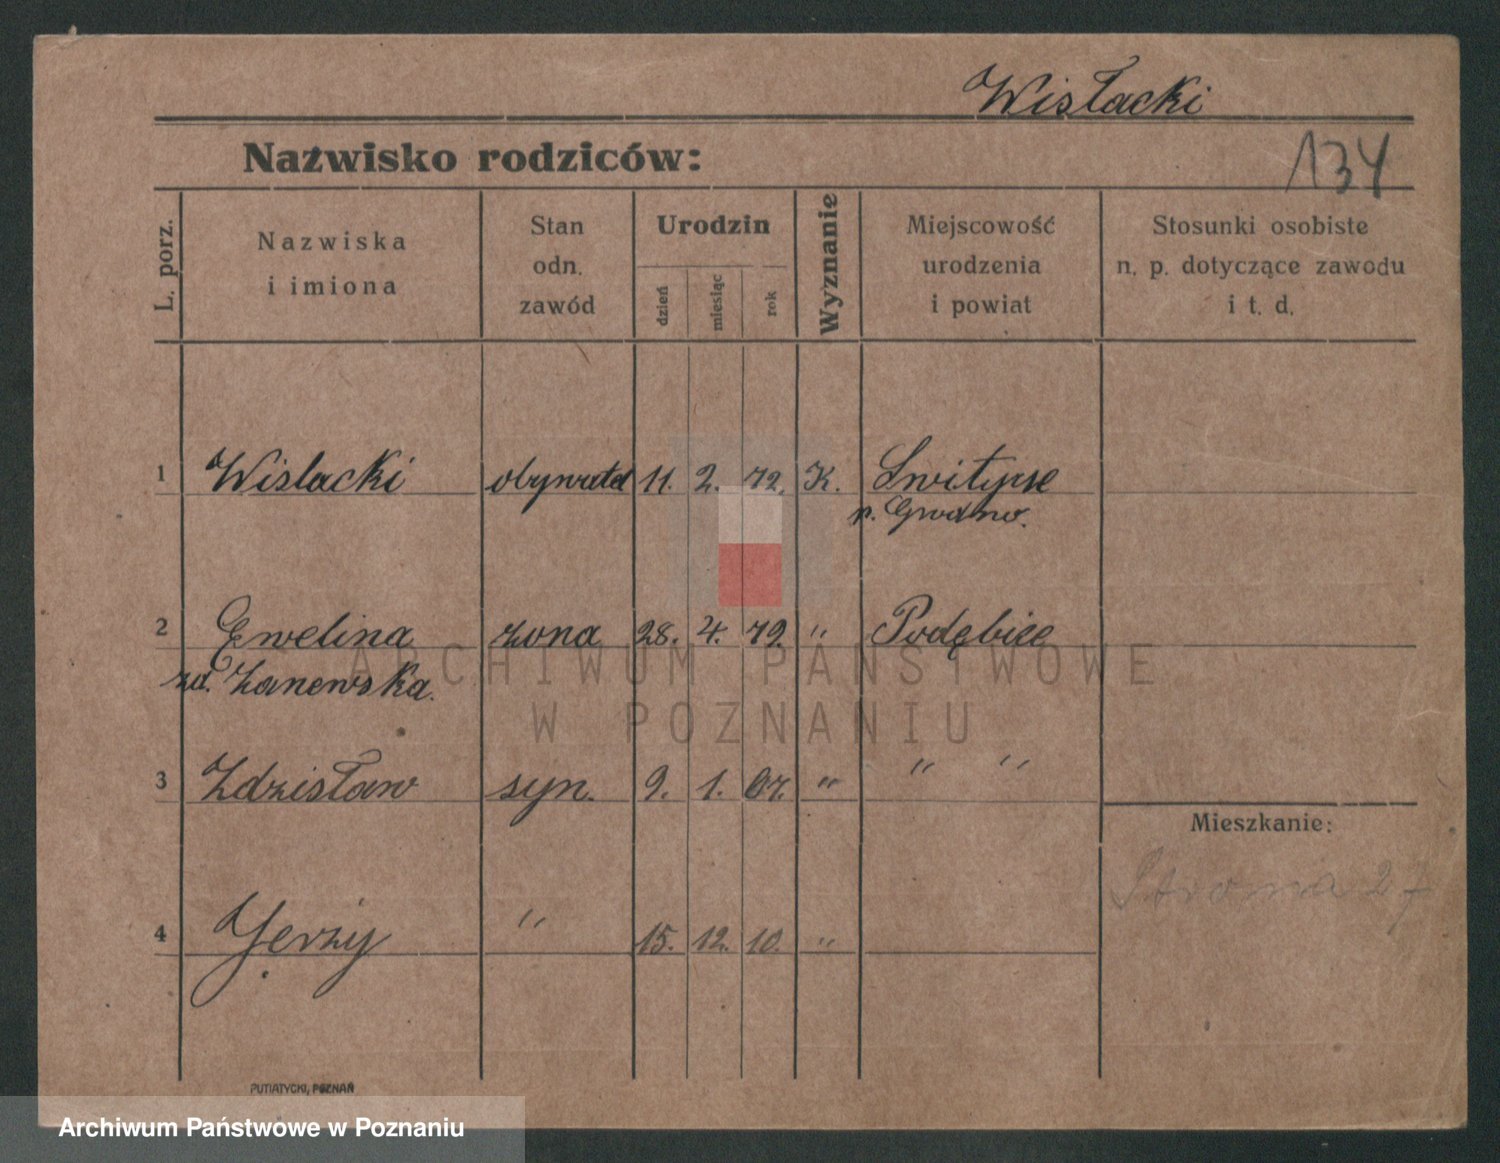 Wisłacki
Nazwisko rodziców:
134
L. porz.
Nazwiska
i imiona
Stan
odn.
zawód
Urodzin
dzień
miesiąc
rok
Wyznanie
Miejscowość
urodzenia
i powiat
Stosunki osobiste
n. p. dotyczące zawodu
i t. d.
1 Wislacki obywatel 11. 2. 72. K.
p. Grodno.
2 Ewelina żona 28. 4. 79. " Podębice
Żanewska.
ARCHIWUM PAŃSTWOWE
W POZNANIU
3 Zdzisław syn. 9. 1. 07. " " "
Mieszkanie:
Stroma 27
4 Jerzy " 15. 12. 10. "
PUTIATYCKI, POZNAŃ
Archiwum Państwowe w Poznaniu